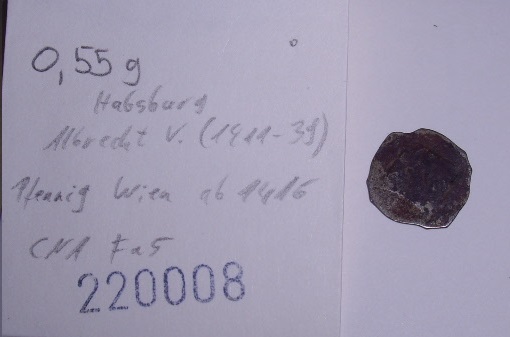 0,55 g
Habsburg
Albrecht V. (1411-39)
Pfennig Wien ab 1416
CNA Fa5
220008